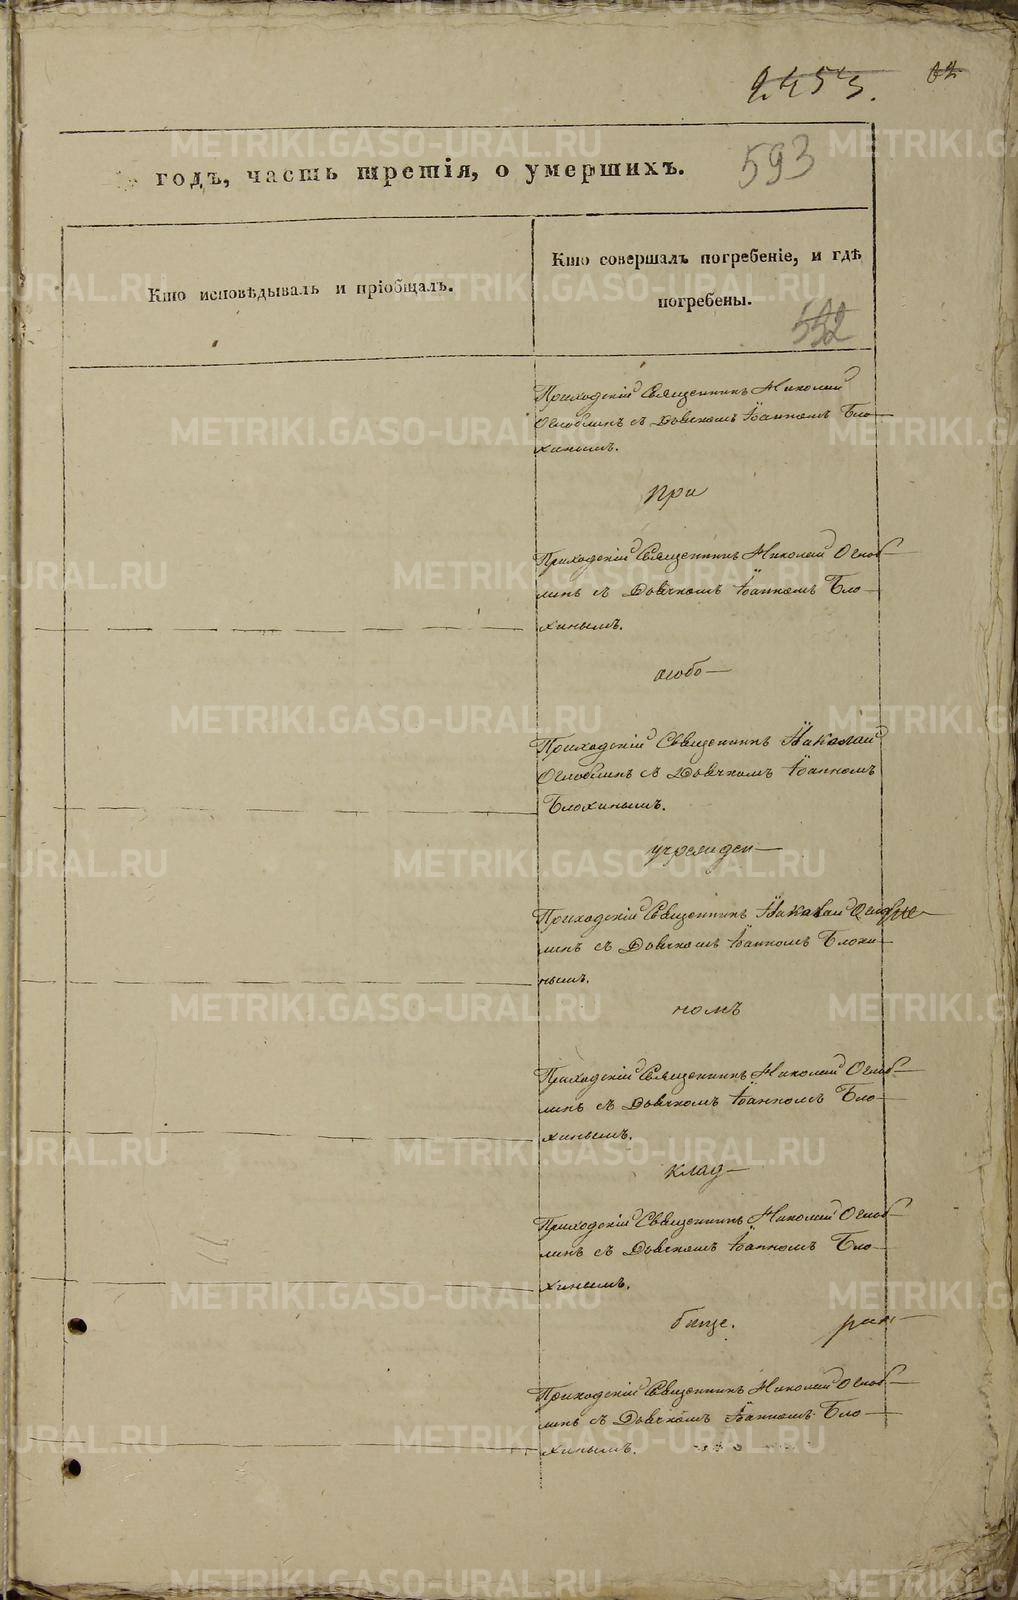 2453.
62
годъ, часть третія, о умершихъ.
593
Кто исповѣдывалъ и пріобщалъ.
Кто совершалъ погребеніе, и гдѣ
погребены.
592
Приходскій Священникъ Николай
Оглоблинъ съ Дьячкомъ Іоанномъ Бло-
хинымъ.
при
Приходскій Священникъ Николай Оглоб-
линъ съ Дьячкомъ Іоанномъ Бло-
хинымъ.
особо-
Приходскій Священникъ Николай
Оглоблинъ съ Дьячкомъ Іоанномъ
Блохинымъ.
учрежден-
Приходскій Священникъ Николай Оглоб-
линъ съ Дьячкомъ Іоанномъ Блохи-
нымъ.
номъ
Приходскій Священникъ Николай Оглоб-
линъ съ Дьячкомъ Іоанномъ Бло-
хинымъ.
клад-
Приходскій Священникъ Николай Оглоб-
линъ съ Дьячкомъ Іоанномъ Бло-
хинымъ.
бище.
Приходскій Священникъ Николай Оглоб-
линъ съ Дьячкомъ Іоанномъ Бло-
хинымъ.
METRIKI.GASO-URAL.RU